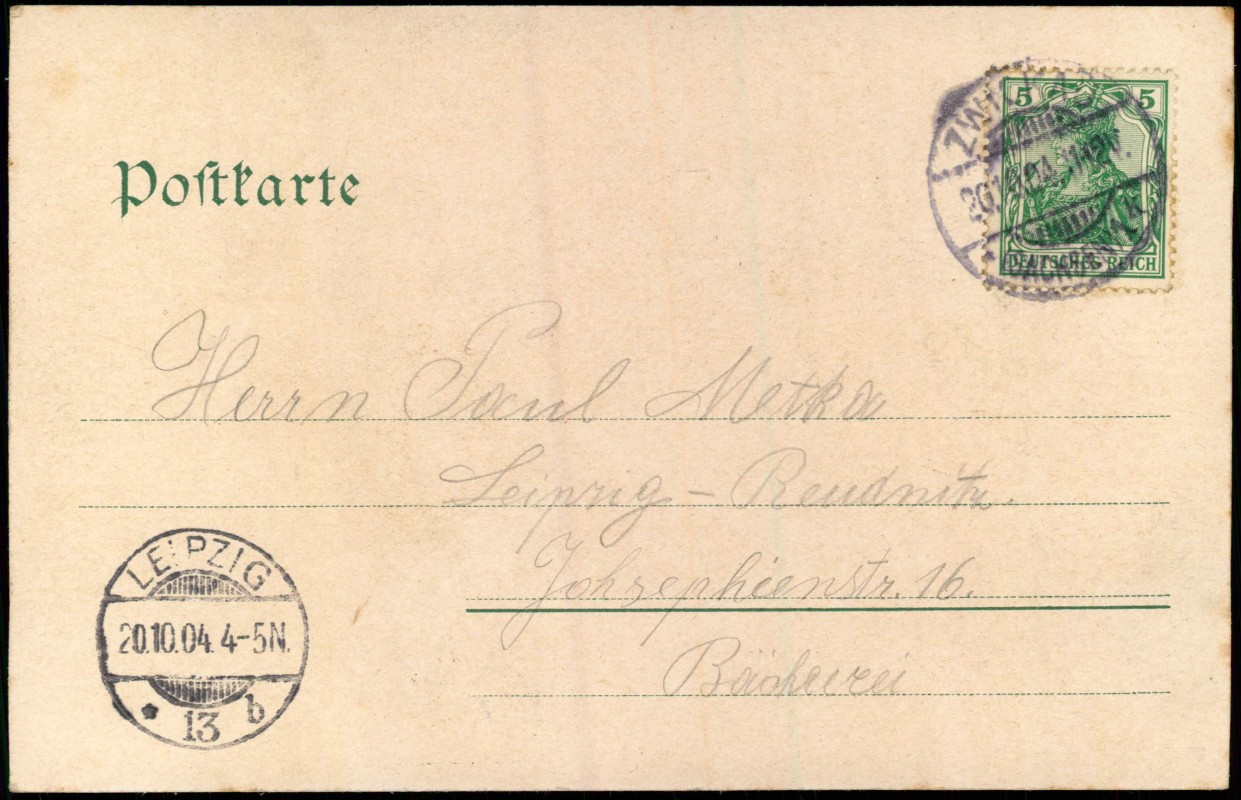 Postkarte
5 5
DEUTSCHES REICH
Herrn Paul Metka
Leipzig - Reudnitz.
Johsephienstr. 16.
Bäckerei
LEIPZIG
20.10.04. 4-5N.
* 13 b